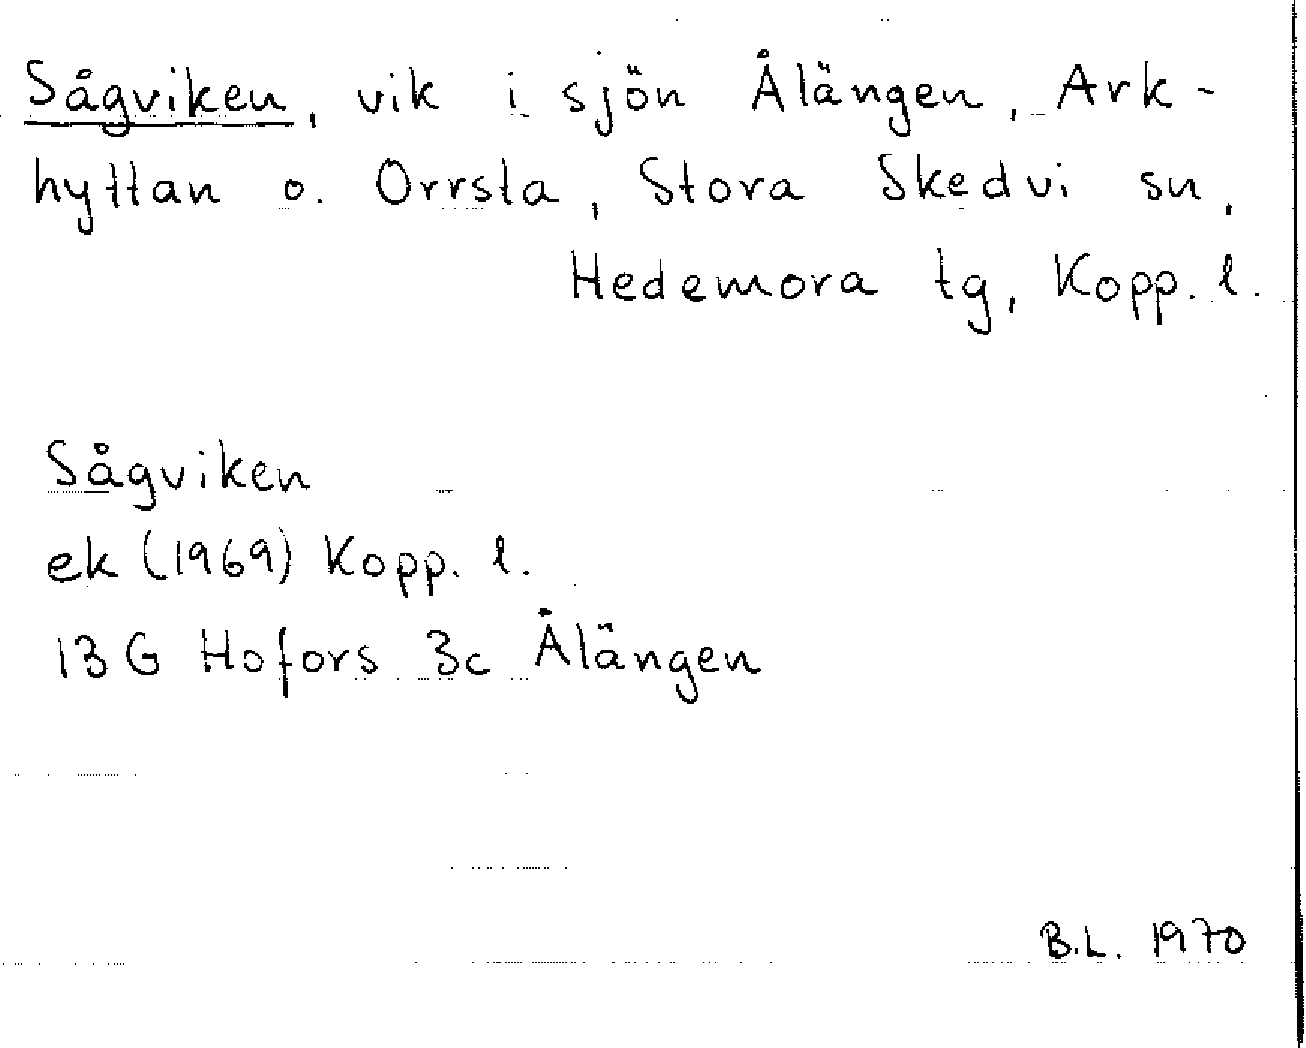 Sågviken, vik i sjön Ålängen, Ark-
hyttan o. Orrsta, Stora Skedvi sn,
Hedemora tg, Kopp. l.
Sågviken
ek (1969) Kopp. l.
13 G Hofors 3c Ålängen
B.L. 1970